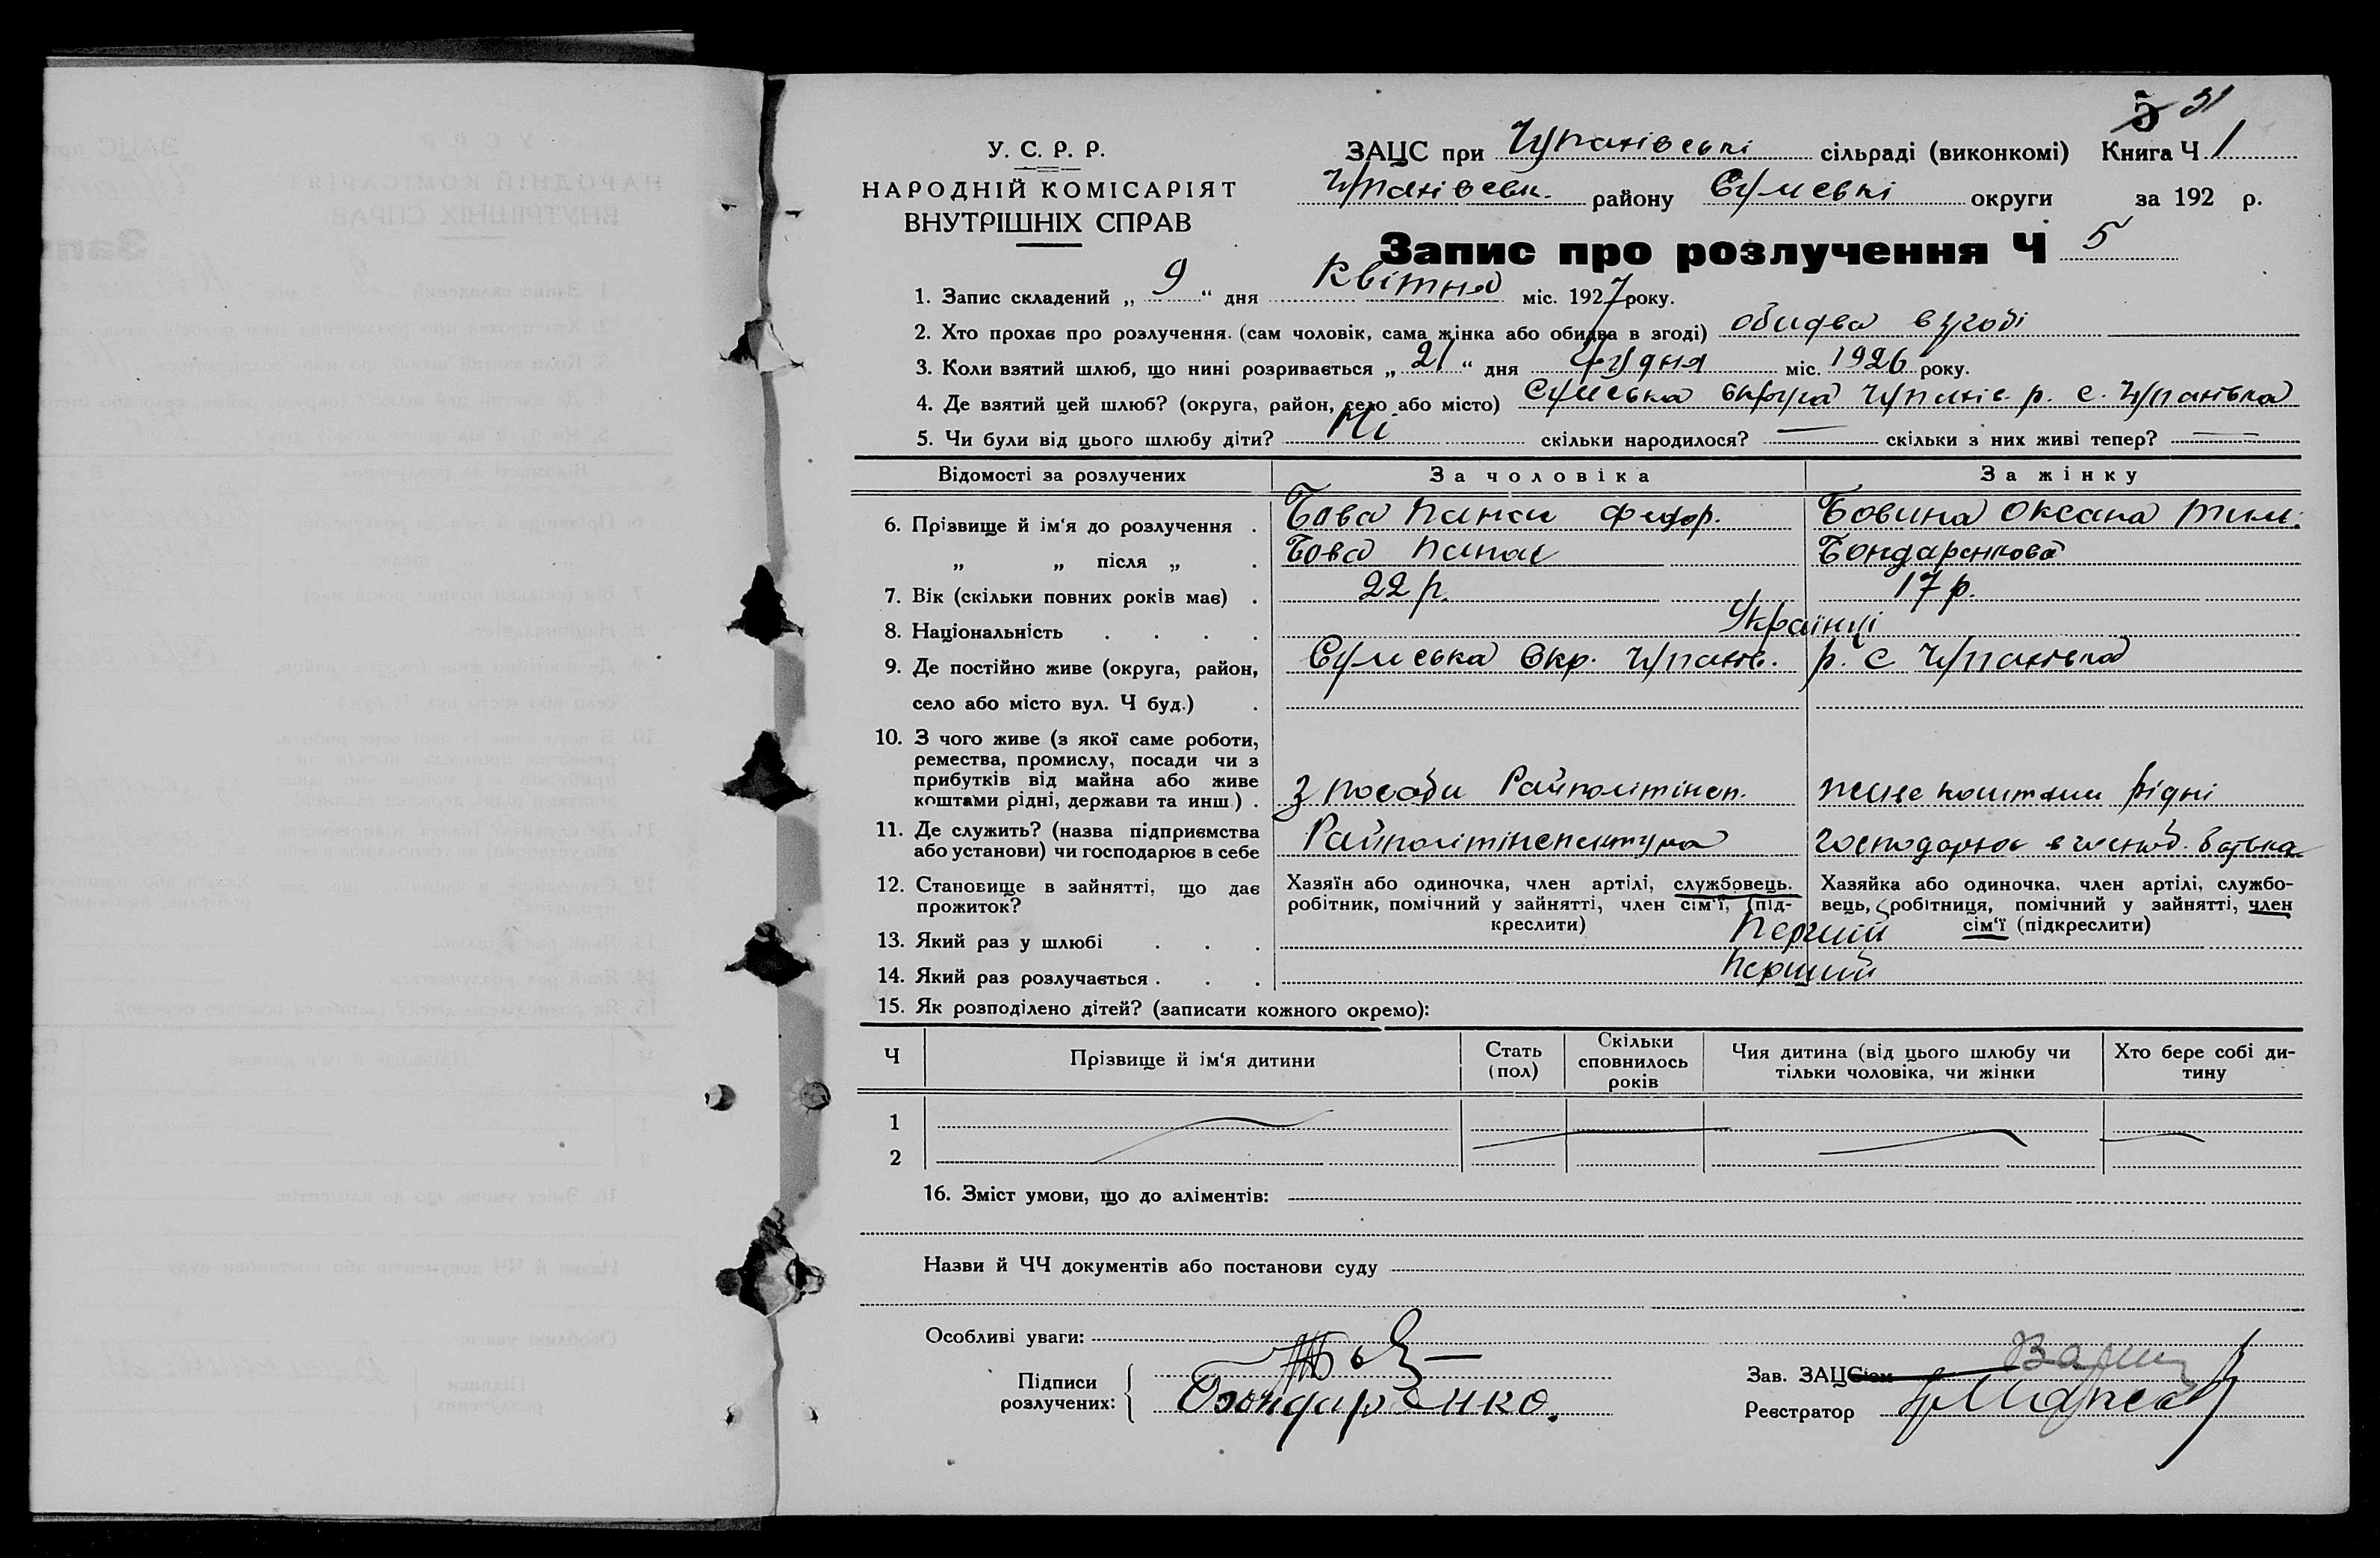 5 31
У. С. Р. Р.
НАРОДНІЙ КОМІСАРІЯТ
ВНУТРІШНІХ СПРАВ
ЗАЦС при Чупахівські сільраді (виконкомі) Книга Ч 1
Чупахівськ. району Сумські округи за 192 р.
Запис про розлучення Ч 5
1. Запис складений „ 9 “ дня Квітня міс. 1927 року.
2. Хто прохає про розлучення. (сам чоловік, сама жінка або обидва в згоді) обидва в згоді
3. Коли взятий шлюб, що нині розривається „ 21 “ дня Грудня міс. 1926 року.
4. Де взятий цей шлюб? (округа, район, село або місто) Сумська округа Чупахів. р. с. Чупахівка
5. Чи були від цього шлюбу діти? Ні скільки народилося? — скільки з них живі тепер? —
Відомості за розлучених За чоловіка За жінку
6. Прізвище й ім‘я до розлучення . Бова Панас Федор. Бовина Оксана Тим.
„ „ після „ . Бова Панас Бондаренкова
7. Вік (скільки повних років має) . 22 р. 17 р.
8. Національність . . . . Українці
9. Де постійно живе (округа, район, Сумська Окр. Чупахів. р. с Чупахівка
село або місто вул. Ч буд.) .
10. З чого живе (з якої саме роботи,
ремества, промислу, посади чи з
прибутків від майна або живе
коштами рідні, держави та инш) . З посади Райполітінсп. живе коштами рідні
11. Де служить? (назва підприємства
або установи) чи господарює в себе Райполітінспектура господарює в господ. батька
12. Становище в зайнятті, що дає
прожиток?
Хазяїн або одиночка, член артілі, службовець.
робітник, помічний у зайнятті, член сім‘ї, (під-
креслити)
Хазяйка або одиночка, член артілі, службо-
вець, робітниця, помічний у зайнятті, член
сім‘ї (підкреслити)
13. Який раз у шлюбі . . . Перший
14. Який раз розлучається . . . Перший
15. Як розподілено дітей? (записати кожного окремо):
Ч Прізвище й ім‘я дитини Стать (пол) Скільки сповнилось років Чия дитина (від цього шлюбу чи тільки чоловіка, чи жінки Хто бере собі ди-тину
1
2
16. Зміст умови, що до аліментів:
Назви й ЧЧ документів або постанови суду
Особливі уваги:
Підписи
розлучених:
Бондаренко.
Зав. ЗАЦС‘ом
Реєстратор